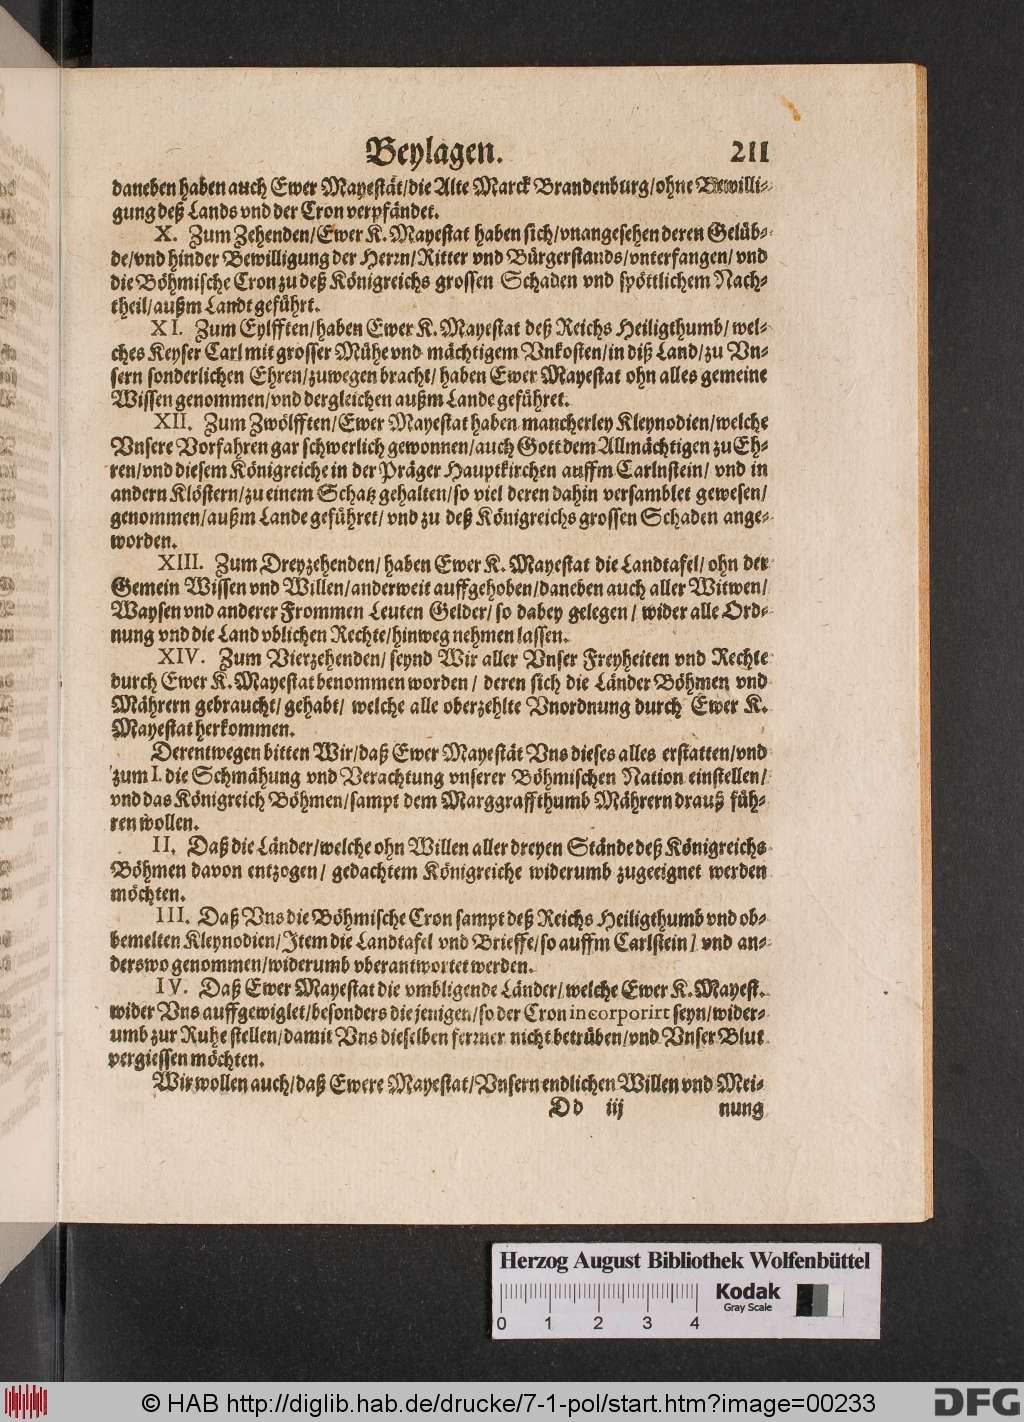 Beylagen. 211
daneben haben auch Ewer Mayestät/die Alte Marck Brandenburg/ohne Bewilli-
gung deß Lands vnd der Cron verpfändet.
X. Zum Zehenden/Ewer K. Mayestat haben sich/vnangesehen deren Gelüb-
de/vnd hinder Bewilligung der Herrn/Ritter vnd Bürgerstands/vnterfangen/vnd
die Böhmische Cron zu deß Königreichs grossen Schaden vnd spöttlichem Nach-
theil/außm Landt geführt.
XI. Zum Eylfften/haben Ewer K. Mayestat deß Reichs Heiligthumb/wel-
ches Keyser Carl mit grosser Mühe vnd mächtigem Vnkosten/in diß Land/zu Vn-
sern sonderlichen Ehren/zuwegen bracht/haben Ewer Mayestat ohn alles gemeine
Wissen genommen/vnd dergleichen außm Lande geführet.
XII. Zum Zwölfften/Ewer Mayestat haben mancherley Kleynodien/welche
Vnsere Vorfahren gar schwerlich gewonnen/auch Gott dem Allmächtigen zu Eh-
ren/vnd diesem Königreiche in der Präger Hauptkirchen auffm Carlnstein/vnd in
andern Klöstern/zu einem Schatz gehalten/so viel deren dahin versamblet gewesen/
genommen/außm Lande geführet/vnd zu deß Königreichs grossen Schaden ange-
worden.
XIII. Zum Dreyzehenden/haben Ewer K. Mayestat die Landtafel/ohn der
Gemein Wissen vnd Willen/anderweit auffgehoben/daneben auch aller Witwen/
Waysen vnd anderer Frommen Leuten Gelder/so dabey gelegen/wider alle Ord-
nung vnd die Land vblichen Rechte/hinweg nehmen lassen.
XIV. Zum Vierzehenden/seynd Wir aller Vnser Freyheiten vnd Rechte
durch Ewer K. Mayestat benommen worden/deren sich die Länder Böhmen vnd
Mährern gebraucht/gehabt/welche alle oberzehlte Vnordnung durch Ewer K.
Mayestat herkommen.
Derentwegen bitten Wir/daß Ewer Mayestät Vns dieses alles erstatten/vnd
zum I. die Schmähung vnd Verachtung vnserer Böhmischen Nation einstellen/
vnd das Königreich Böhmen/sampt dem Marggraffthumb Mährern drauß füh-
ren wollen.
II. Daß die Länder/welche ohn Willen aller dreyen Stände deß Königreichs
Böhmen davon entzogen/gedachtem Königreiche widerumb zugeeignet werden
möchten.
III. Daß Vns die Böhmische Cron sampt deß Reichs Heiligthumb vnd ob-
bemelten Kleynodien/Item die Landtafel vnd Brieffe/so auffm Carlstein/vnd an-
derswo genommen/widerumb vberantwortet werden.
IV. Daß Ewer Mayestat die vmbligende Länder/welche Ewer K. Mayest.
wider Vns auffgewiglet/besonders die jenigen/so der Cron incorporirt seyn/wider-
umb zur Ruhe stellen/damit Vns dieselben ferrner nicht betrüben/vnd Vnser Blut
vergiessen möchten.
Wir wollen auch/daß Ewere Mayestat/Vnsern endlichen Willen vnd Mei-
Dd iij nung
Herzog August Bibliothek Wolfenbüttel
Kodak
Gray Scale
0 1 2 3 4
© HAB http://diglib.hab.de/drucke/7-1-pol/start.htm?image=00233
DFG